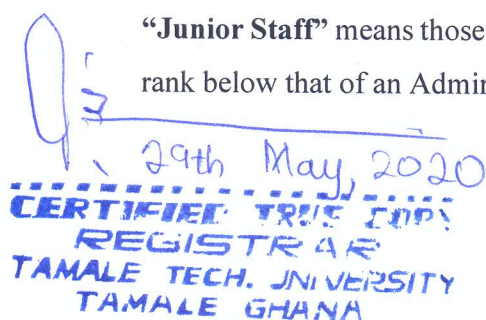 “Junior Staff” means those
rank below that of an Admin
29th May, 2020
CERTIFIED TRUE COPY
REGISTRAR
TAMALE TECH. UNIVERSITY
TAMALE GHANA